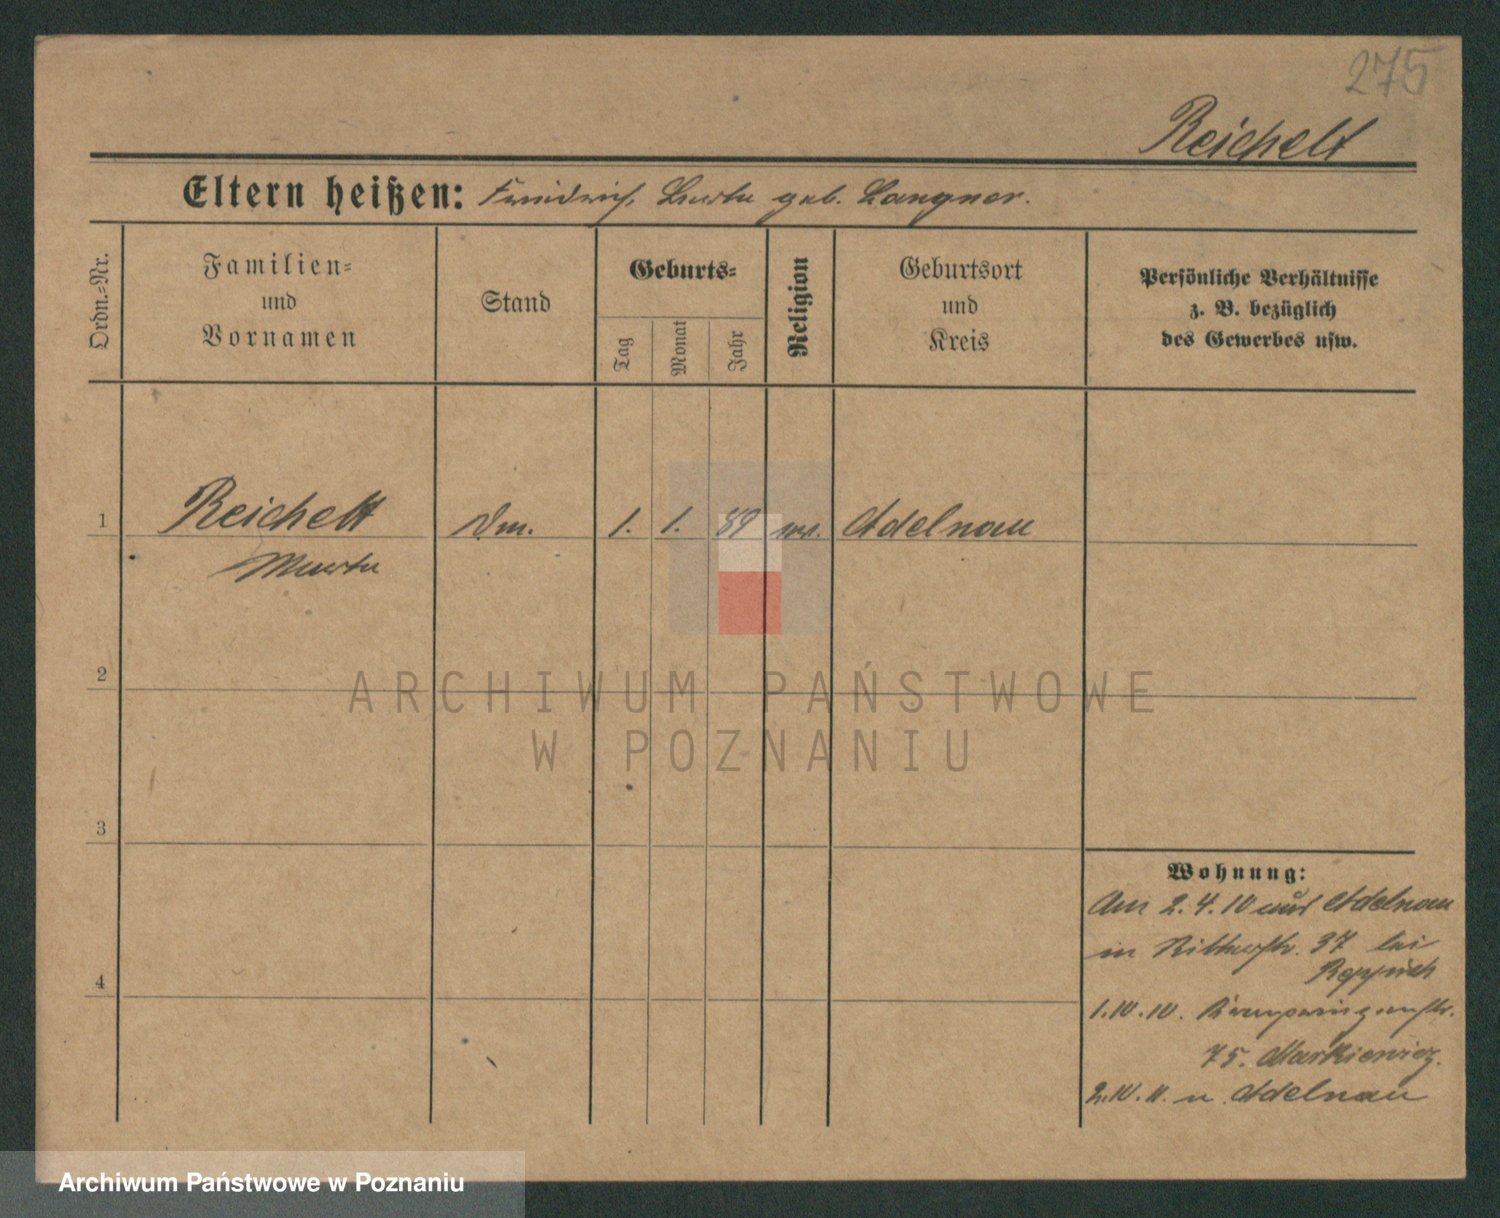 275
Reichelt
Eltern heißen: Friedrich, Berta geb. Langner.
Ordn.-Nr.
Familien-
und
Vornamen
Stand
Geburts-
Tag
Monat
Jahr
Religion
Geburtsort
und
Kreis
Persönliche Verhältnisse
z. B. bezüglich
des Gewerbes usw.
1
Reichelt
Marta
1.
1.
89
Adelnau
2
ARCHIWUM PAŃSTWOWE
W POZNANIU
3
4
Wohnung:
Am 2.4.10 aus Adelnau
in Ritterstr. 37 bei
1.10.10.
75. Markiewicz.
2.10.11. n. Adelnau
Archiwum Państwowe w Poznaniu